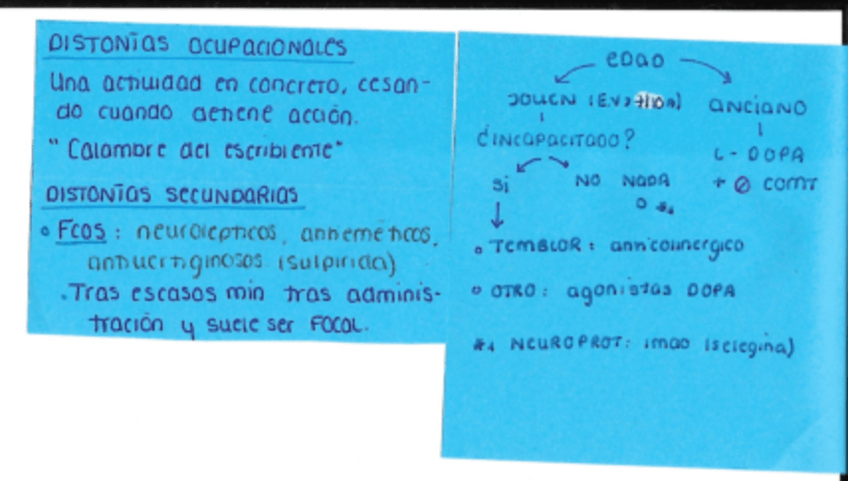 DISTONÍAS OCUPACIONALES
Una actividad en concreto, cesan-
do cuando detiene acción.
"Calambre del escribiente"
DISTONÍAS SECUNDARIAS
° Fcos: neurolépticos, antieméticos,
antivertiginosos (sulpirida)
. Tras escasos min tras adminis-
tración y suele ser FOCAL.
EDAD
JOVEN (E.V > a) ANCIANO
¿INCAPACITADO? L-DOPA
SÍ NO NADA + Ø COMT
O *1
° TEMBLOR: anticolinérgico
° OTRO: agonistas DOPA
*1 NEUROPROT: IMAO (selegina)